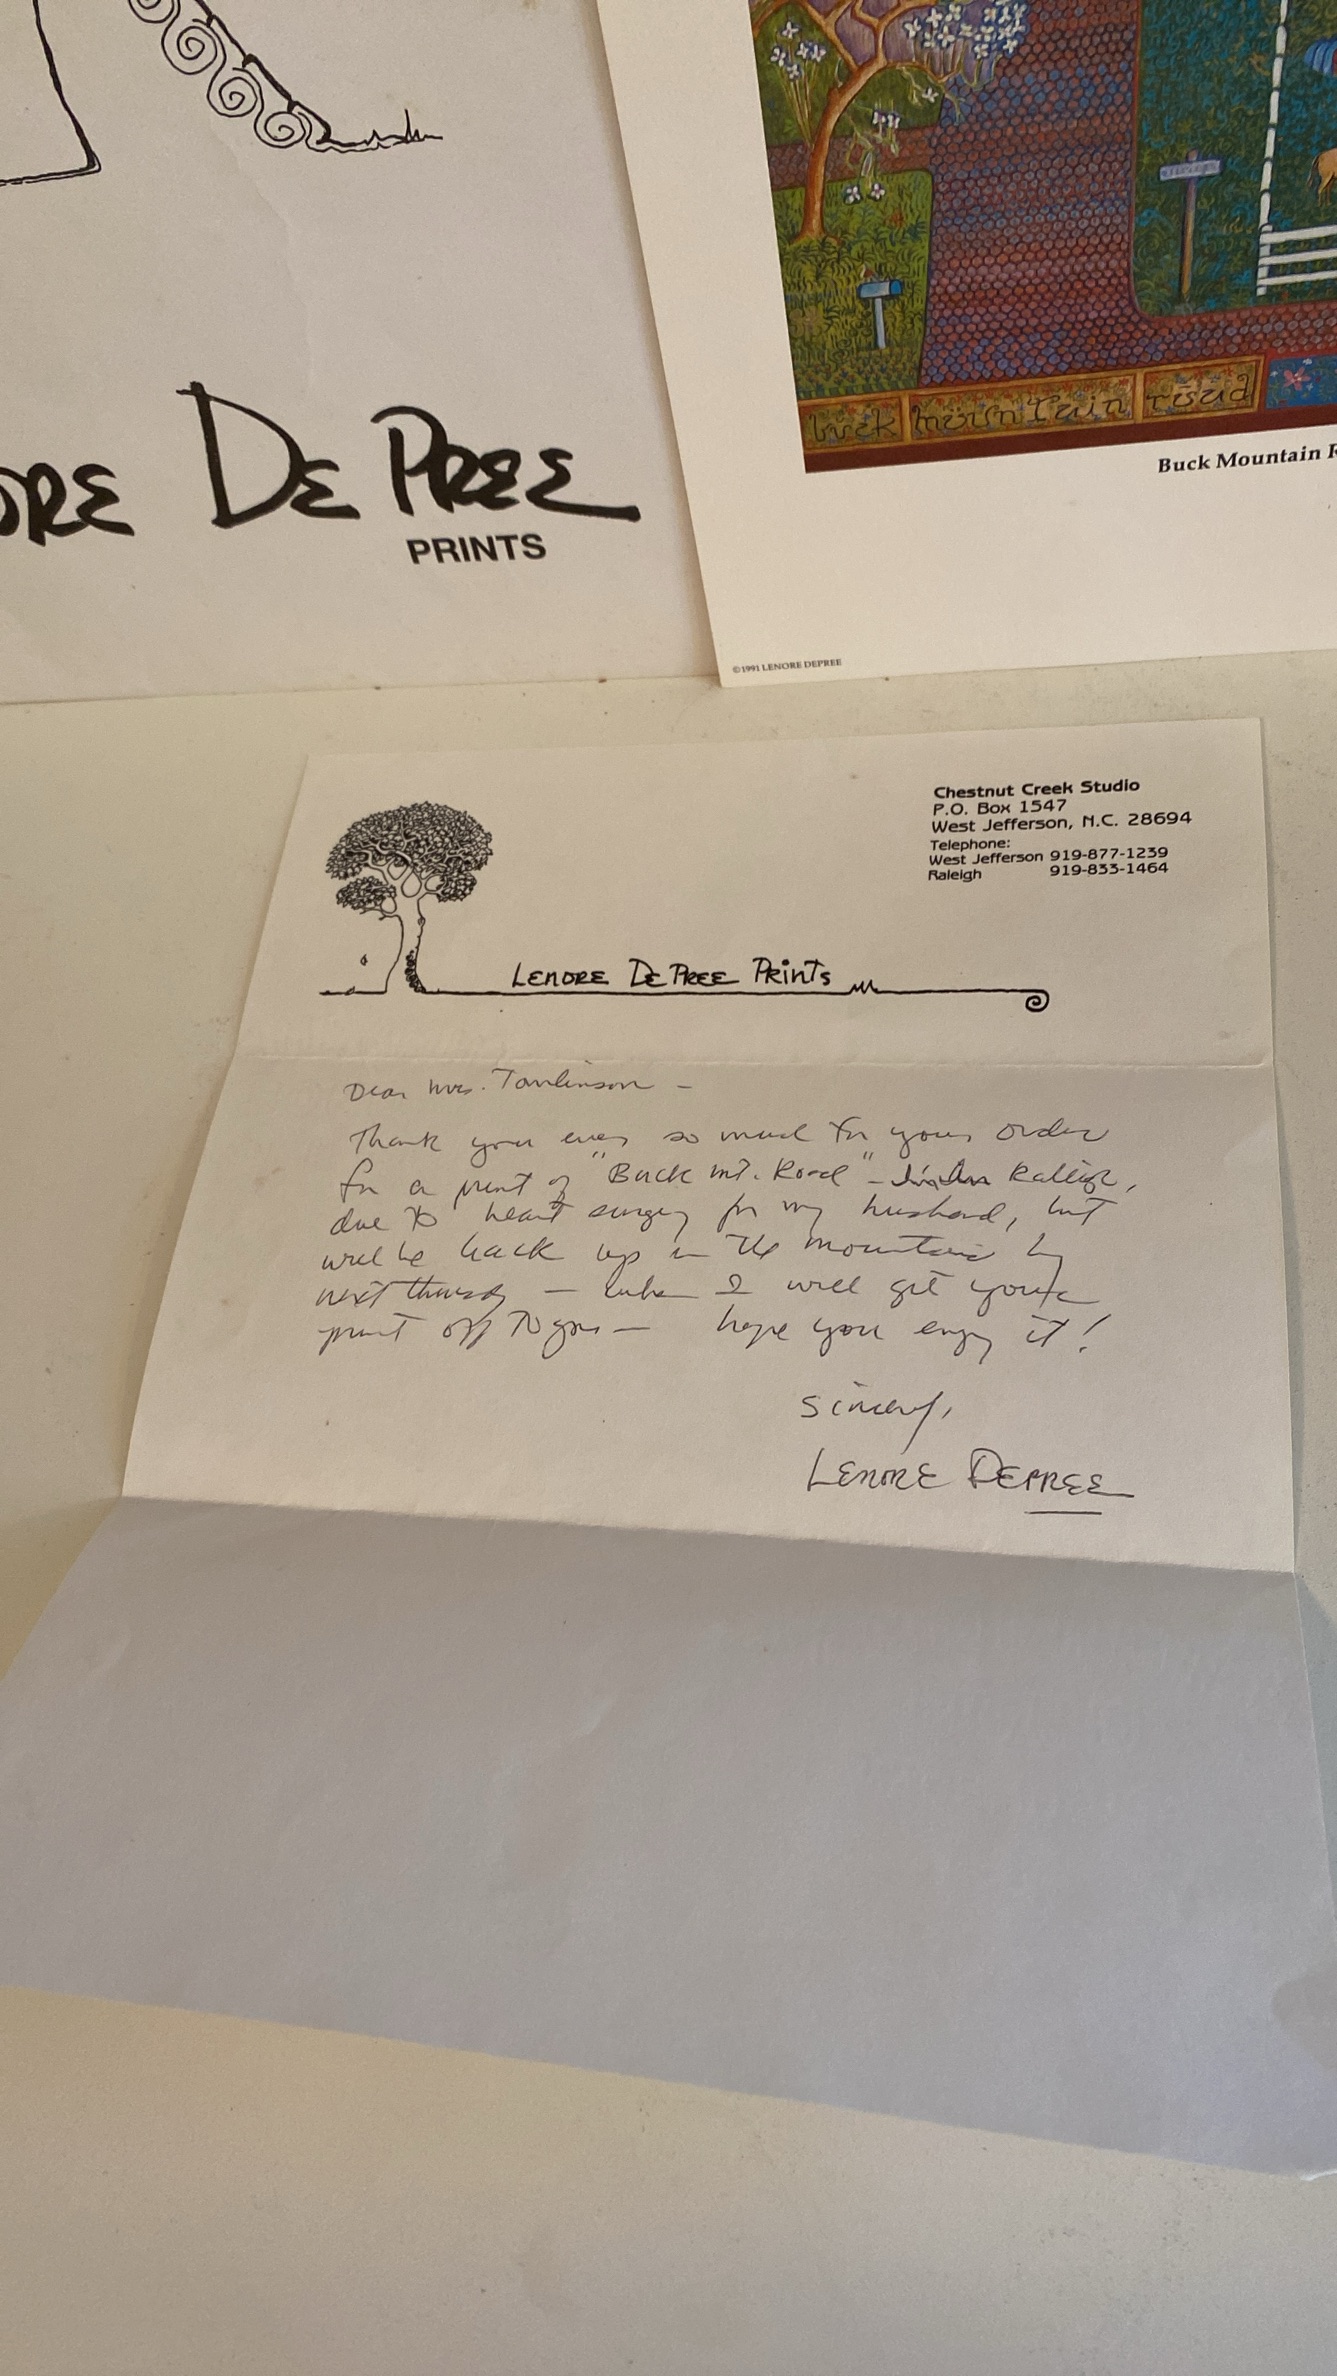 ORE DE PREE
PRINTS
buck mountain road
Buck Mountain
©1991 LENORE DEPREE
Chestnut Creek Studio
P.O. Box 1547
West Jefferson, N.C. 28694
Telephone:
West Jefferson 919-877-1239
Raleigh 919-833-1464
LENORE DE PREE PRINTS
Dear Mrs. Tomlinson -
Thank you ever so much for your order
for a print of "Buck Mt. Road" - Raleigh,
due to heart surgery for my husband, but
will be back up in the mountains by
next thursday — when I will get your
print off to you — hope you enjoy it!
Sincerely,
LENORE DEPREE